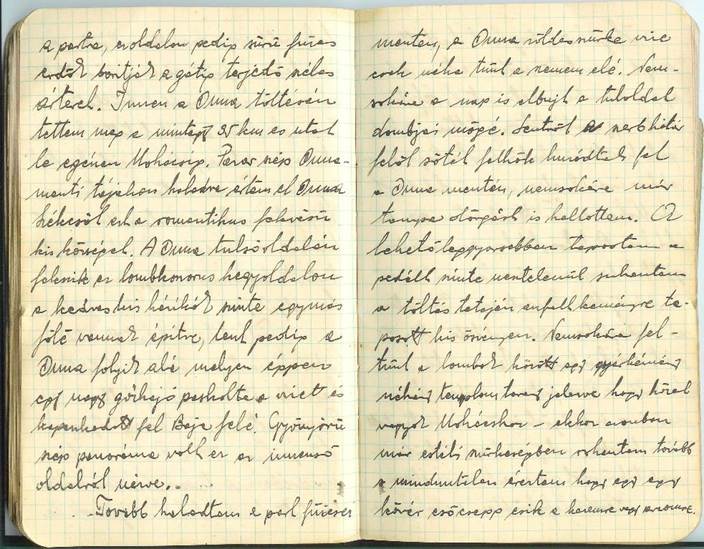 a partra, ez oldalon pedig sűrű füzes
erdőt borítják a gátig terjedő széles
árteret. Innen a Duna töltésén
tettem meg a mintegy 35 km-es utat
le egészen Mohácsig. Paras szép Duna-
menti tájakon haladva értem el Duna
székcsőt ezt a romantikus fekvésű
kis községet. A Duna tulsó oldalán
fekszik ez lombkoronás hegyoldalon
a kedves kis házikók szinte egymás
fölé vannak építve, lent pedig a
Duna folyik alá melyen éppen
egy nagy gőzhajó pasholta a vizet és
kapaszkodott fel Baja felé. Gyönyörű
szép panoráma volt ez az innenső
oldalról nézve.
Tovább haladtam a part füzesei
mentén, a Duna zöldes szürke vize
csak néha tünt a szemem elé. Nem-
sokára a nap is elbujt a tuloldal
dombjai mögé. Lentről a szerb határ
felől sötét felhők huzódtak fel
a Duna mentén, nemsokára már
tompa dörgést is hallottam. A
lehető leggyorsabban tapostam a
pedált szinte nesztelenül suhantam
a töltés tetején aszfalt keményre ta-
posott kis ösvényen. Nemsokára fel-
tünt a lombok között egy gyárkémény
néhány templom torony jelezve hogy közel
vagyok Mohácshoz – ekkor azonban
már esteli szürkeségben rohantam tovább
s minduntalan éreztem hogy egy egy
kövér esőcsepp esik a kezemre vagy arcomra.